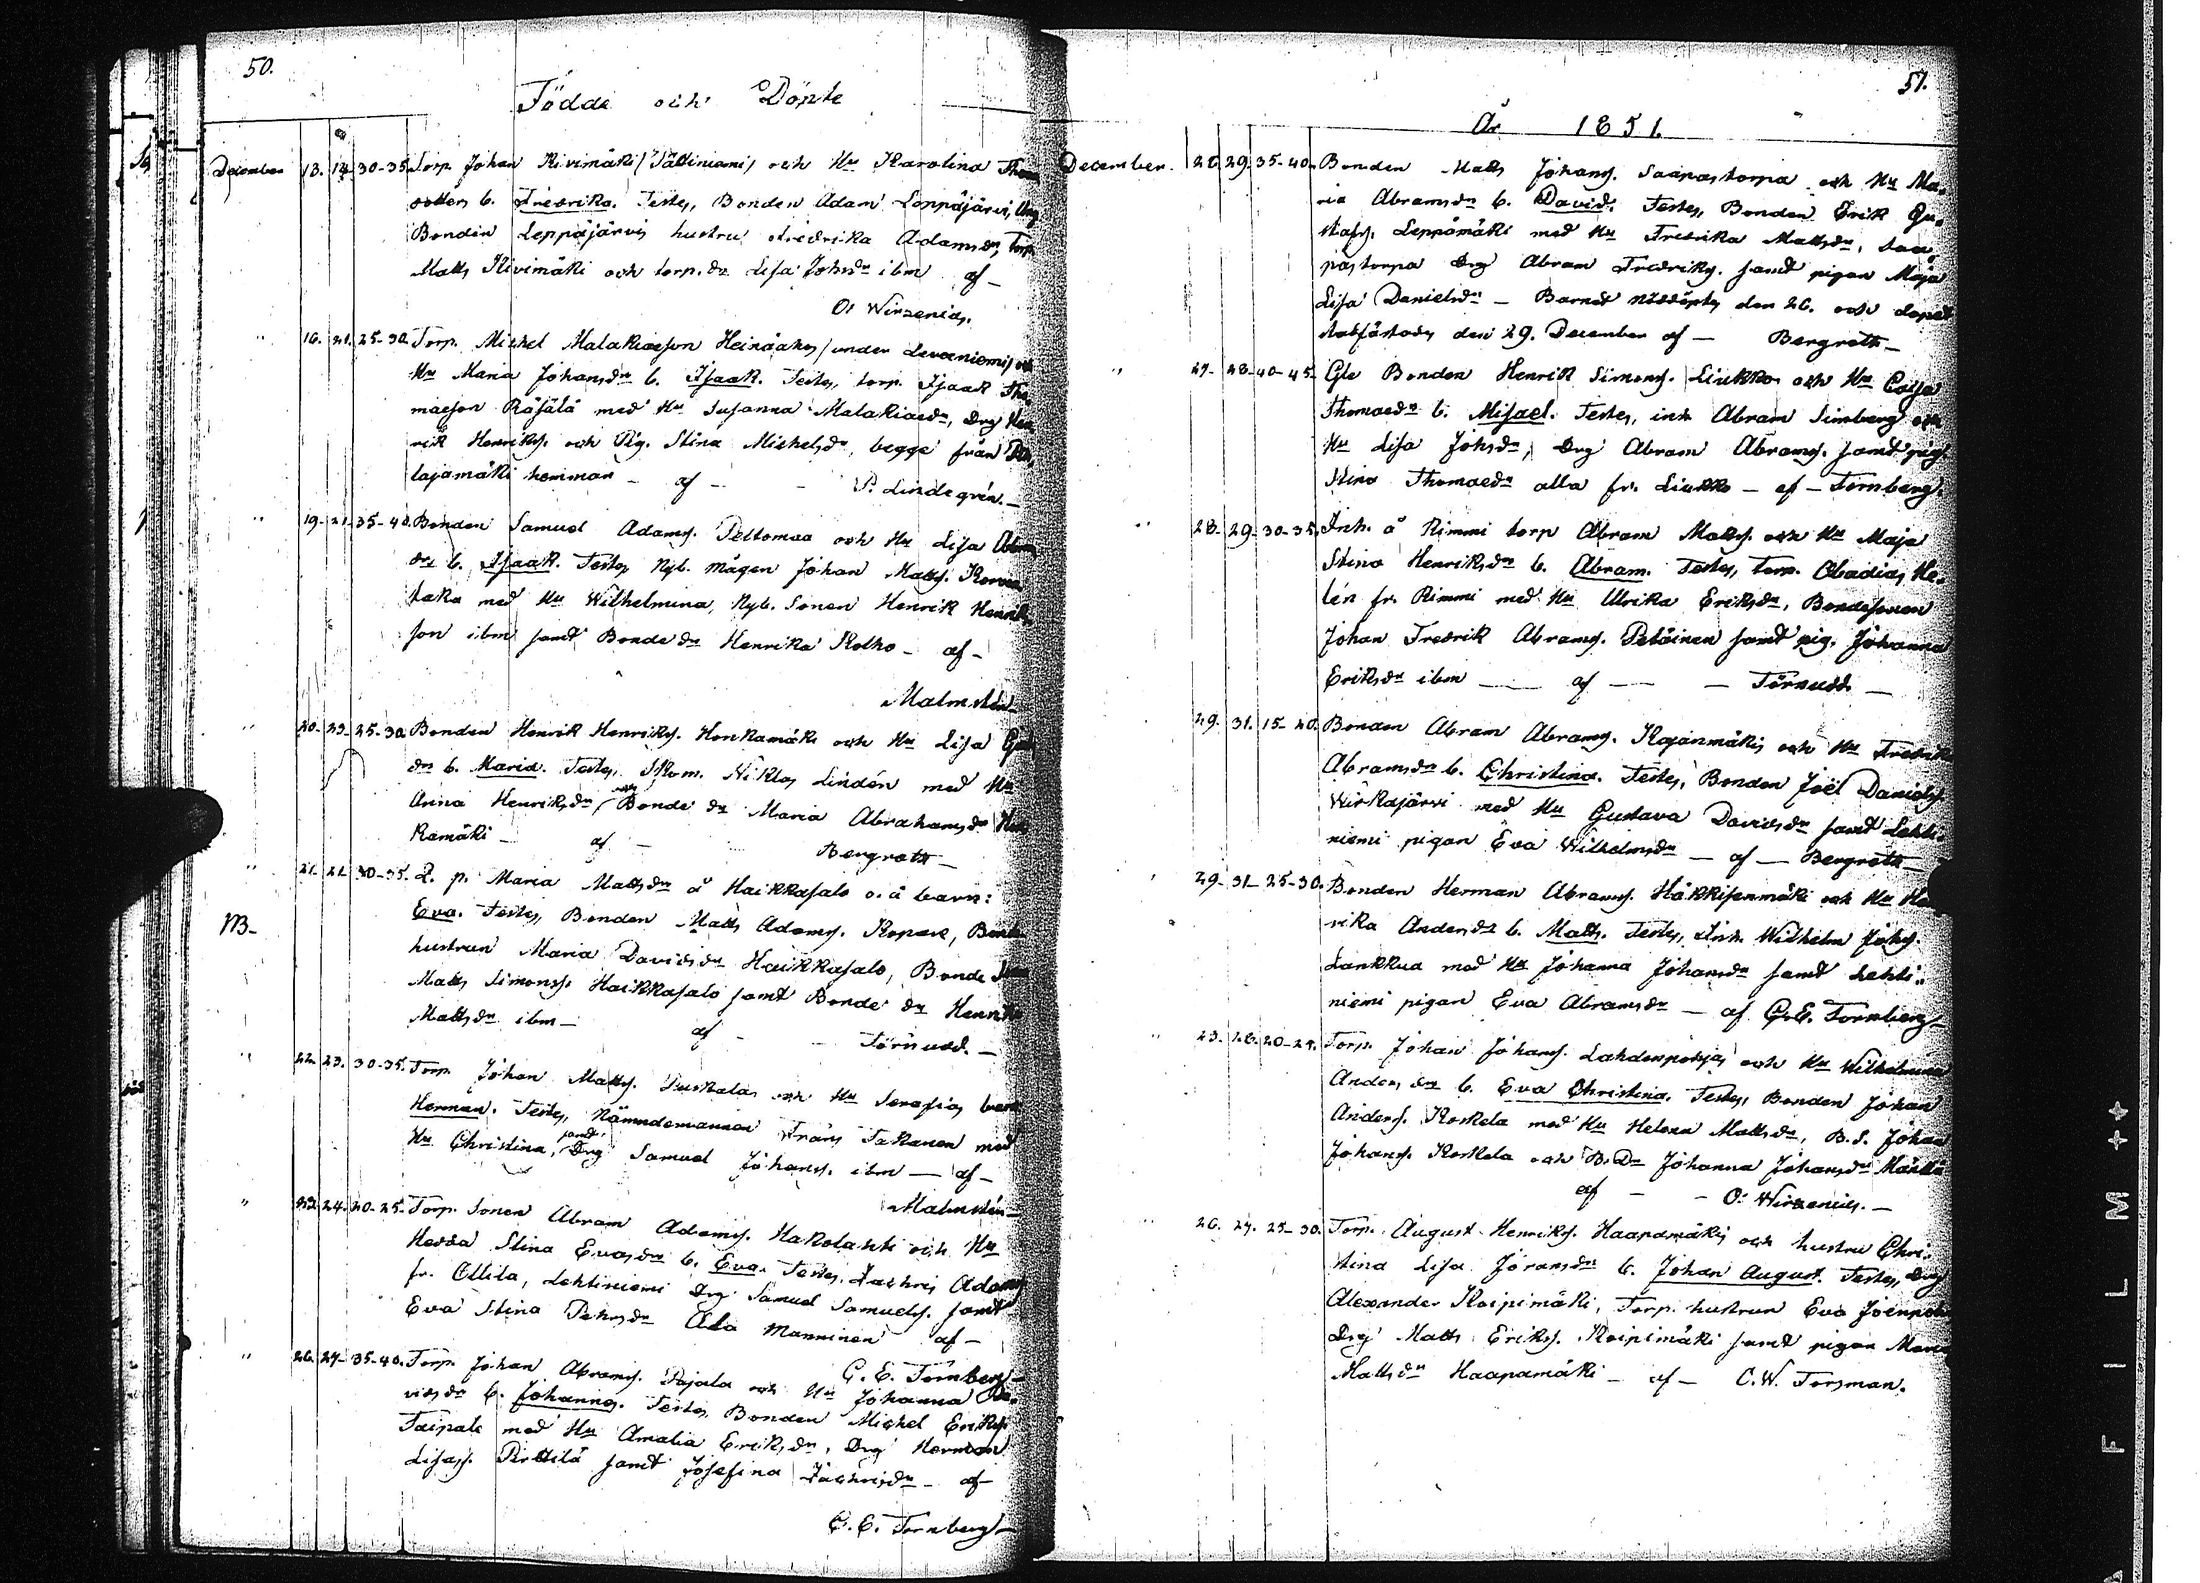 50.
Födde och Döpte
December 13. 14. 30-35. Torp. Johan Kivimäki (Jälliniemi) och Hu Karolina Thom
dotter b. Fredrika. Testes, Bonden Adam Leppäjärvi,
Bonden Leppäjärvis hustru Fredrika Adamsdr, Torp.
Matts Kivimäki och torp. dr Lisa Johsdr ibm af —
O: Wirzenius.
" 16. 21. 25-30. Torp. Michel Malakiaeson Heinäaho (under Levaniemi) och
Hu Maria Johansdr b. Isaak. Testes, torp. Isaak Tho
maeson Räsälä med Hu Susanna Malakiaedr, Drg Hen
rik Henriks. och Pig. Stina Michelsdr, begge från
lajamäki hemman — af — P. Lindegrén. —
" 19. 21. 35-40. Bonden Samuel Adams. Peltomaa och Hu Lisa Abra
dr b. Isaak. Testes Nyb. mågen Johan Matts. Korvan
taka med Hu Wilhelmina, Nyb. Sonen Henrik Henrik
son ibm samt Bonde dr Henrika Kotko — af —
Malmstén
" 20. 23. 25-30. Bonden Henrik Henriks. Honkamäki och Hu Lisa
dr b. Maria. Testes, Skom. Niklas Lindén med Hu
Anna Henriksdr, och Bonde dr Maria Abrahamsdr Hon
kamäki — af — Bergroth —
" 21. 22. 30-35. L. p. Maria Mattsdr å Haikkasalo o. ä barn:
M- Eva. Testes, Bonden Matts Adams. Kopare, Bonde
hustrun Maria Davidsdr Haikkasalo, Bonde Sonen
Matts Simonss. Haikkasalo samt Bonde dr Henrika
Mattsdr ibm — af — Törnudd. —
" 22. 23. 30-35. Torp. Johan Matts. Tuskala och Hu Serafia barn
Herman. Testes, Nämndemannen Frans Takanen med
Hu Christina, samt Drg Samuel Johans. ibm — af —
Malmstén —
" 23. 24. 20-25. Torp. Sonen Abram Adams. Hakolahti och Hu
Hedda Stina Evasdr b. Eva. Testes, Zachris Adams
fr. Ollila, Lehtiniemi Drg Samuel Samuels. samt
Eva Stina Petersdr Ala Manninen af —
G. E. Tornberg —
" 26. 27. 35-40. Torp. Johan Abrams. Pajala och Hu Johanna Da
vidsdr b. Johannes. Testes, Bonden Michel Eriks.
Taipale med Hu Amalia Eriksdr, Drg Herman
Lisass. Pirttilä samt Josefina Zachrisdr — af
G. E. Tornberg —
51.
År 1851.
December. 26. 29. 35-40. Bonden Matts Johans. Saapastorpa och Hu Ma
ria Abramsdr b. David. Testes, Bonden Erik Gu
stafs. Leppämäki med Hu Fredrika Mattsdr, Saa
pastorpa Drg Abram Fredriks. samt pigan Maja
Lisa Danielsdr — Barnet nöddöptes den 26. och dopet
stadfästades den 29. December af — Bergroth —
" 27. 28. 40-45. Gle Bonden Henrik Simons. Liukko och Hu Caisa
Thomaedr b. Misael. Testes, inh. Abram Simberg och
Hu Lisa Johsdr, Drg Abram Abrams. samt pig.
Stina Thomaedr alla fr. Liukko — af — Tornberg.
" 28. 29. 30-35. Inh. å Rimmi torp Abram Matts. och Hu Maja
Stina Henriksdr b. Abram. Testes, Torp. Abadias He
lén fr. Rimmi med Hu Ulrika Eriksdr, Bondesonen
Johan Fredrik Abrams. Petäinen samt pig. Johanna
Eriksdr ibm — af — Törnudd —
29. 31. 15-20. Bonden Abram Abrams. Kajanmäki och Hu Fredrik
Abramsdr b. Christina. Testes, Bonden Joël Daniels.
Wirkajärvi med Hu Gustava Davidsdr samt Lehti
niemi pigan Eva Wilhelmsdr — af — Bergroth —
29. 31. 25-30. Bonden Herman Abrams. Häkkisenmäki och Hu Hen
rika Andersdr b. Matts. Testes, Inh. Wilhelm Johs.
Lankkua med Hu Johanna Johansdr samt Lehti
niemi pigan Eva Abramsdr — af G. E. Tornberg —
" 23. 26. 20-25. Torp. Johan Johans. Lahdenpohja och Hu Wilhelmina
Andersdr b. Eva Christina. Testes, Bonden Johan
Anders. Koskela med Hu Helena Mattsdr, B. S. Johan
Johans. Koskela och B. Dr Johanna Johansdr
af — O: Wirzenius. —
" 26. 27. 25-30. Torp. August Henriks. Haapamäki och hustru Chri
stina Lisa Göransdr b. Johan August. Testes, Drg
Alexander Koipimäki, Torp. hustrun Eva
Drg Matts Eriks. Koipimäki samt pigan Maria
Mattsdr Haapamäki — af — C. W. Forsman.
A F I L M